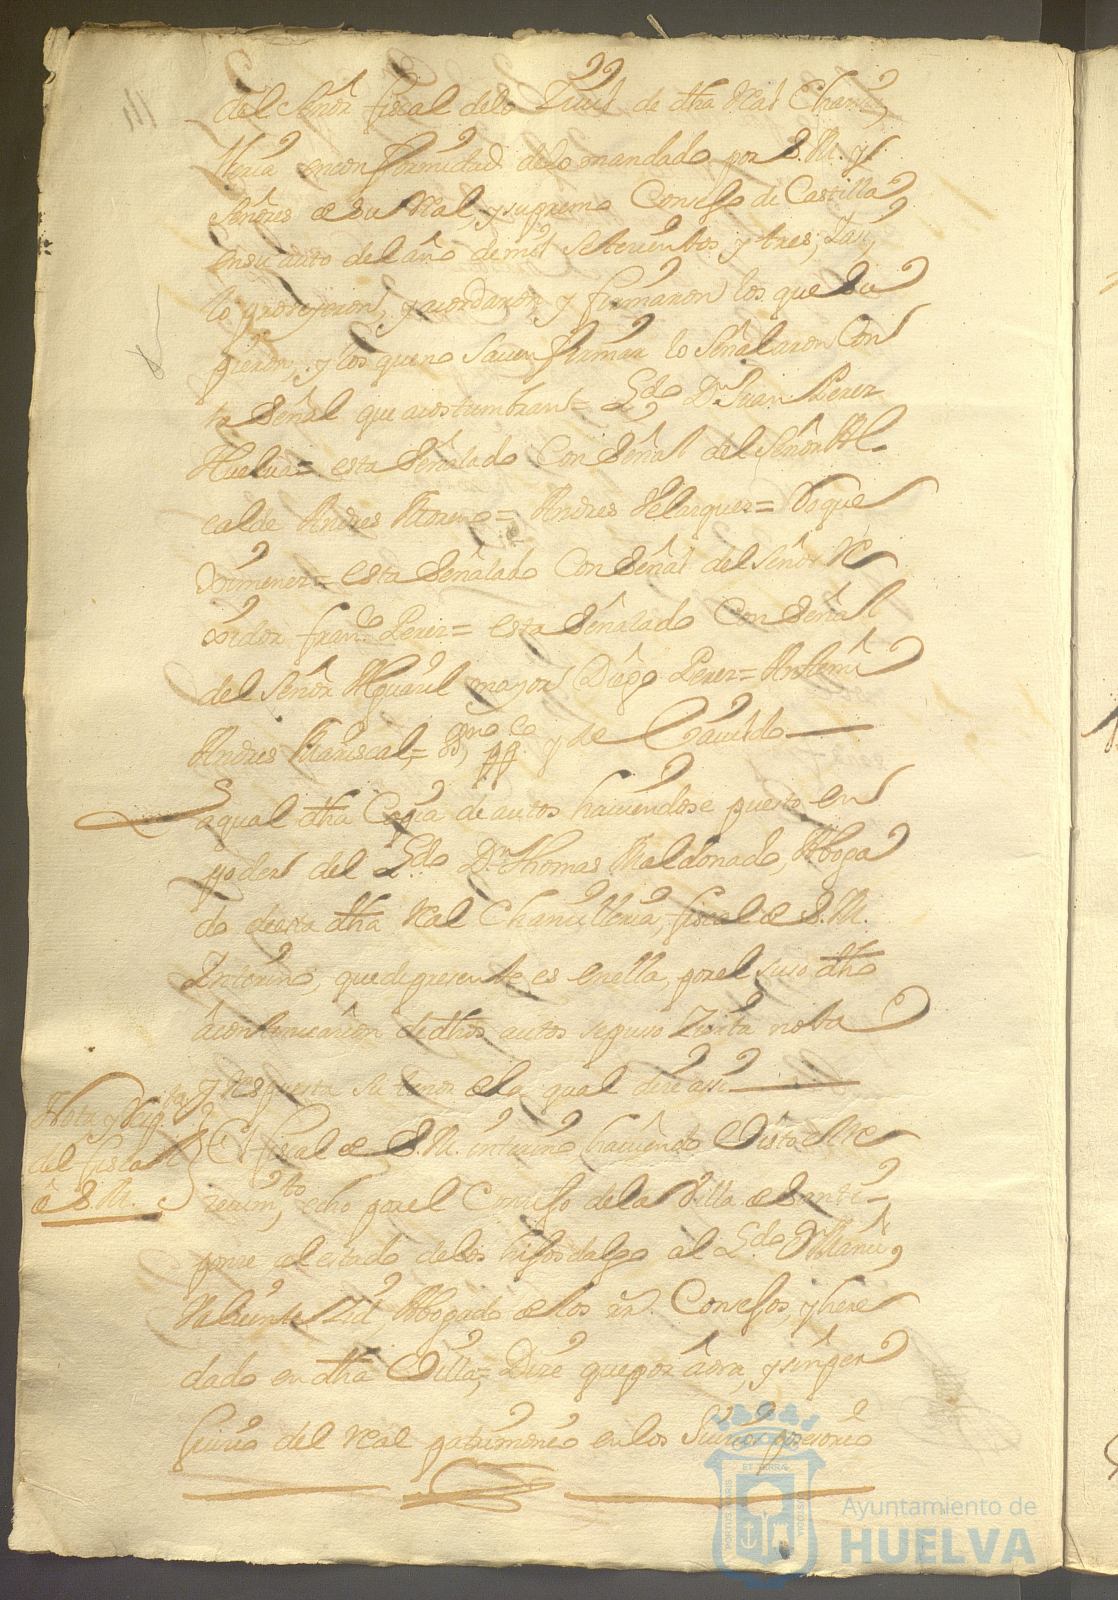 del señor fiscal delo Zivil de dha Real Chanzi,
lleria enconformidad delo mandado por S.M. y
señores de su Real, y supremo Consejo de Castilla
ensu auto del año de mil setecientos y tres; Zasi,
lo proveyeron, y acordaron y firmaron los que su
pieron, y los que no saven firmar lo señalaron Con
la señal que acostumbran= Lzdo Dn Juan Perez
Huelva= esta señalado Con señal del señor Al-
calde Andres Moreno= Andres Velazquez= Roque
Ximenez= esta señalado Con señal del señor Re
xidor Franco Perez= esta señalado Con señal
del señor Alguazil mayor Diego Perez= Antemi
Andres Mariscal,= Ssno pco y de Cavildo
aqual dha Copia de autos haviendose puesto en
poder del Lzdo Dn Thomas Maldonado, Aboga
do desta dha Real Chanzilleria, fiscal de S.M.
Interino, que depresente es enella, por el suso dho
acontinuacion de dhos autos sepuso Zierta nota
y respuesta su tenor dela qual dize assi
Nota y Resp.ta
del fiscal
de S.M.
El fiscal de S.M. interino haviendo Visto el Re
zevim,to echo por el Consejo dela Villa de Santi-
ponze al estado delos hijosdalgo al Lzdo Dn Manu,l
Valiente Zid, Abogado de los Rs. Consejos, y here
dado en dha Villa,= Dize que por aora, y sin per
juizio del Real patrimonio en los Juizios posesorio
Ayuntamiento de
HUELVA